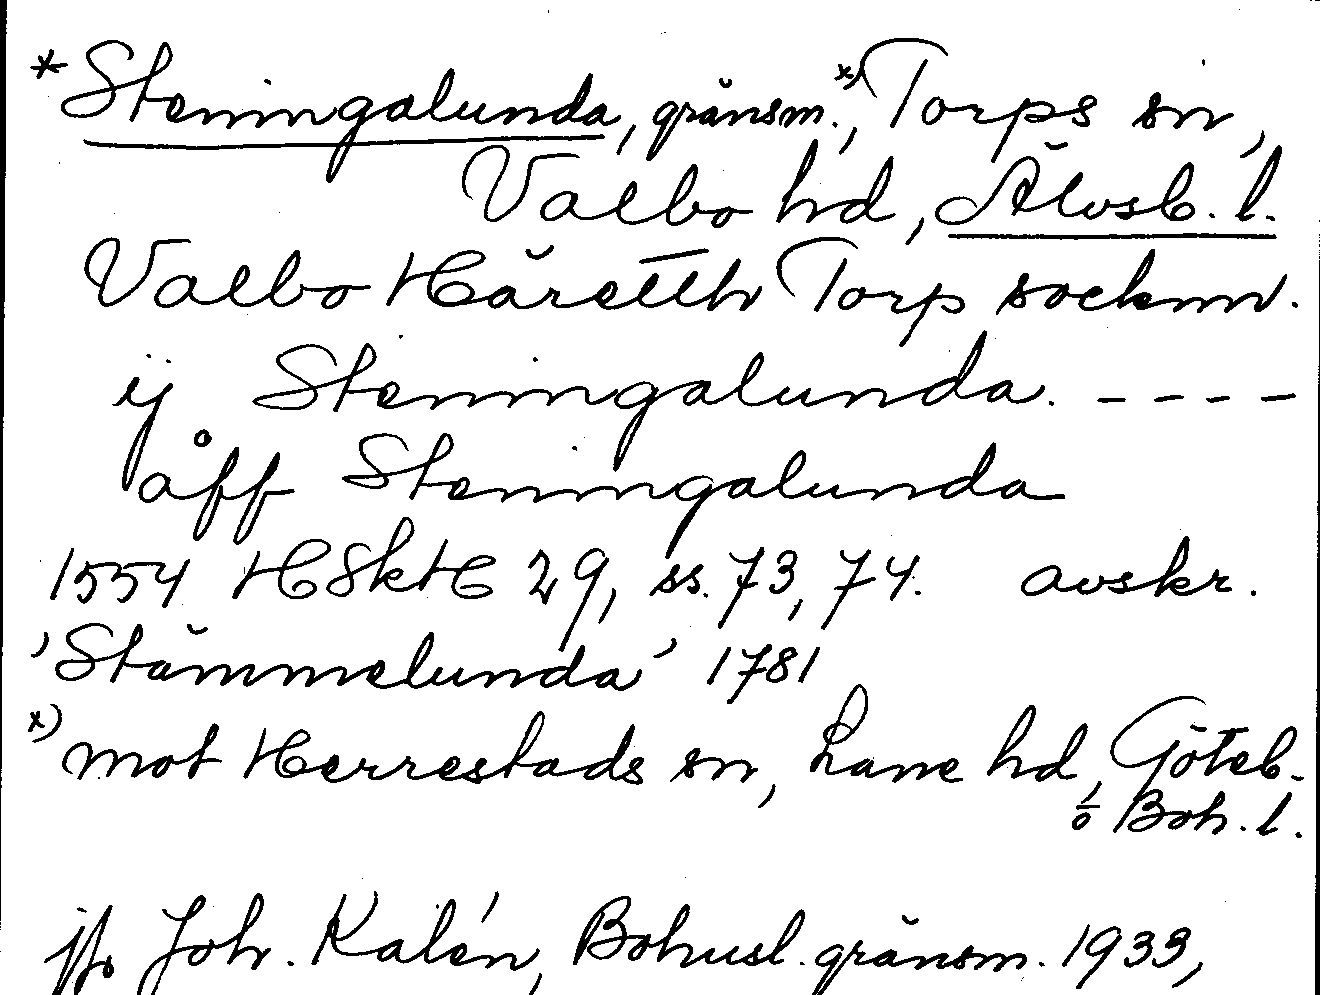 *Steningalunda, gränsm.,x) Torps sn,
Valbo hd, Älvsb. l.
Valbo Häretth Torp socknn.
ij Steningalunda. ----
åff Steningalunda
1554 HSkH 29, ss. 73, 74. avskr.
'Stämmelunda' 1781
x) mot Herrestads sn, Lane hd, Göteb.
o Boh. l.
jfr Joh. Kalén, Bohusl. gränsm. 1933,